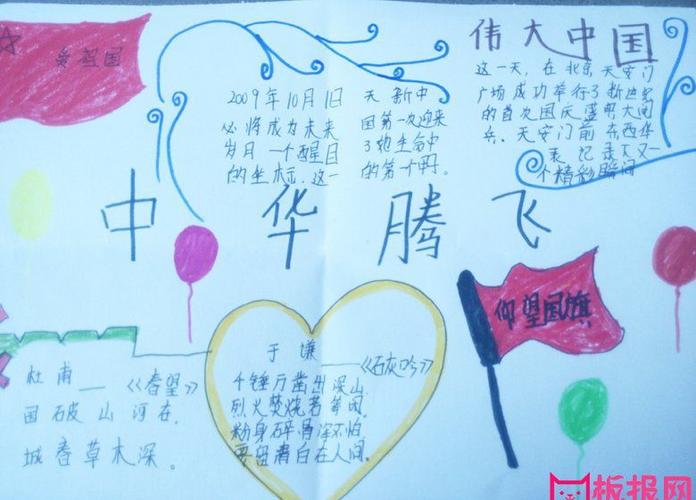 爱祖国
2009年10月1日
必将成为未来
岁月一个醒目
的坐标.这一
天新中
国第一次迎来
了她生命中
的第一个甲.
伟大中国
这一天,在北京天安门
广场成功举行了新世纪
的首次国庆盛明大阅
兵。天安门前东西华
表记录下又一
个精彩瞬间
中华腾飞
仰望国旗
杜甫——《春望》
国破山河在,
城春草木深。
于谦——《石灰吟》
千锤万凿出深山,
烈火焚烧若等闲.
粉身碎骨浑不怕,
要留清白在人间.
板报网